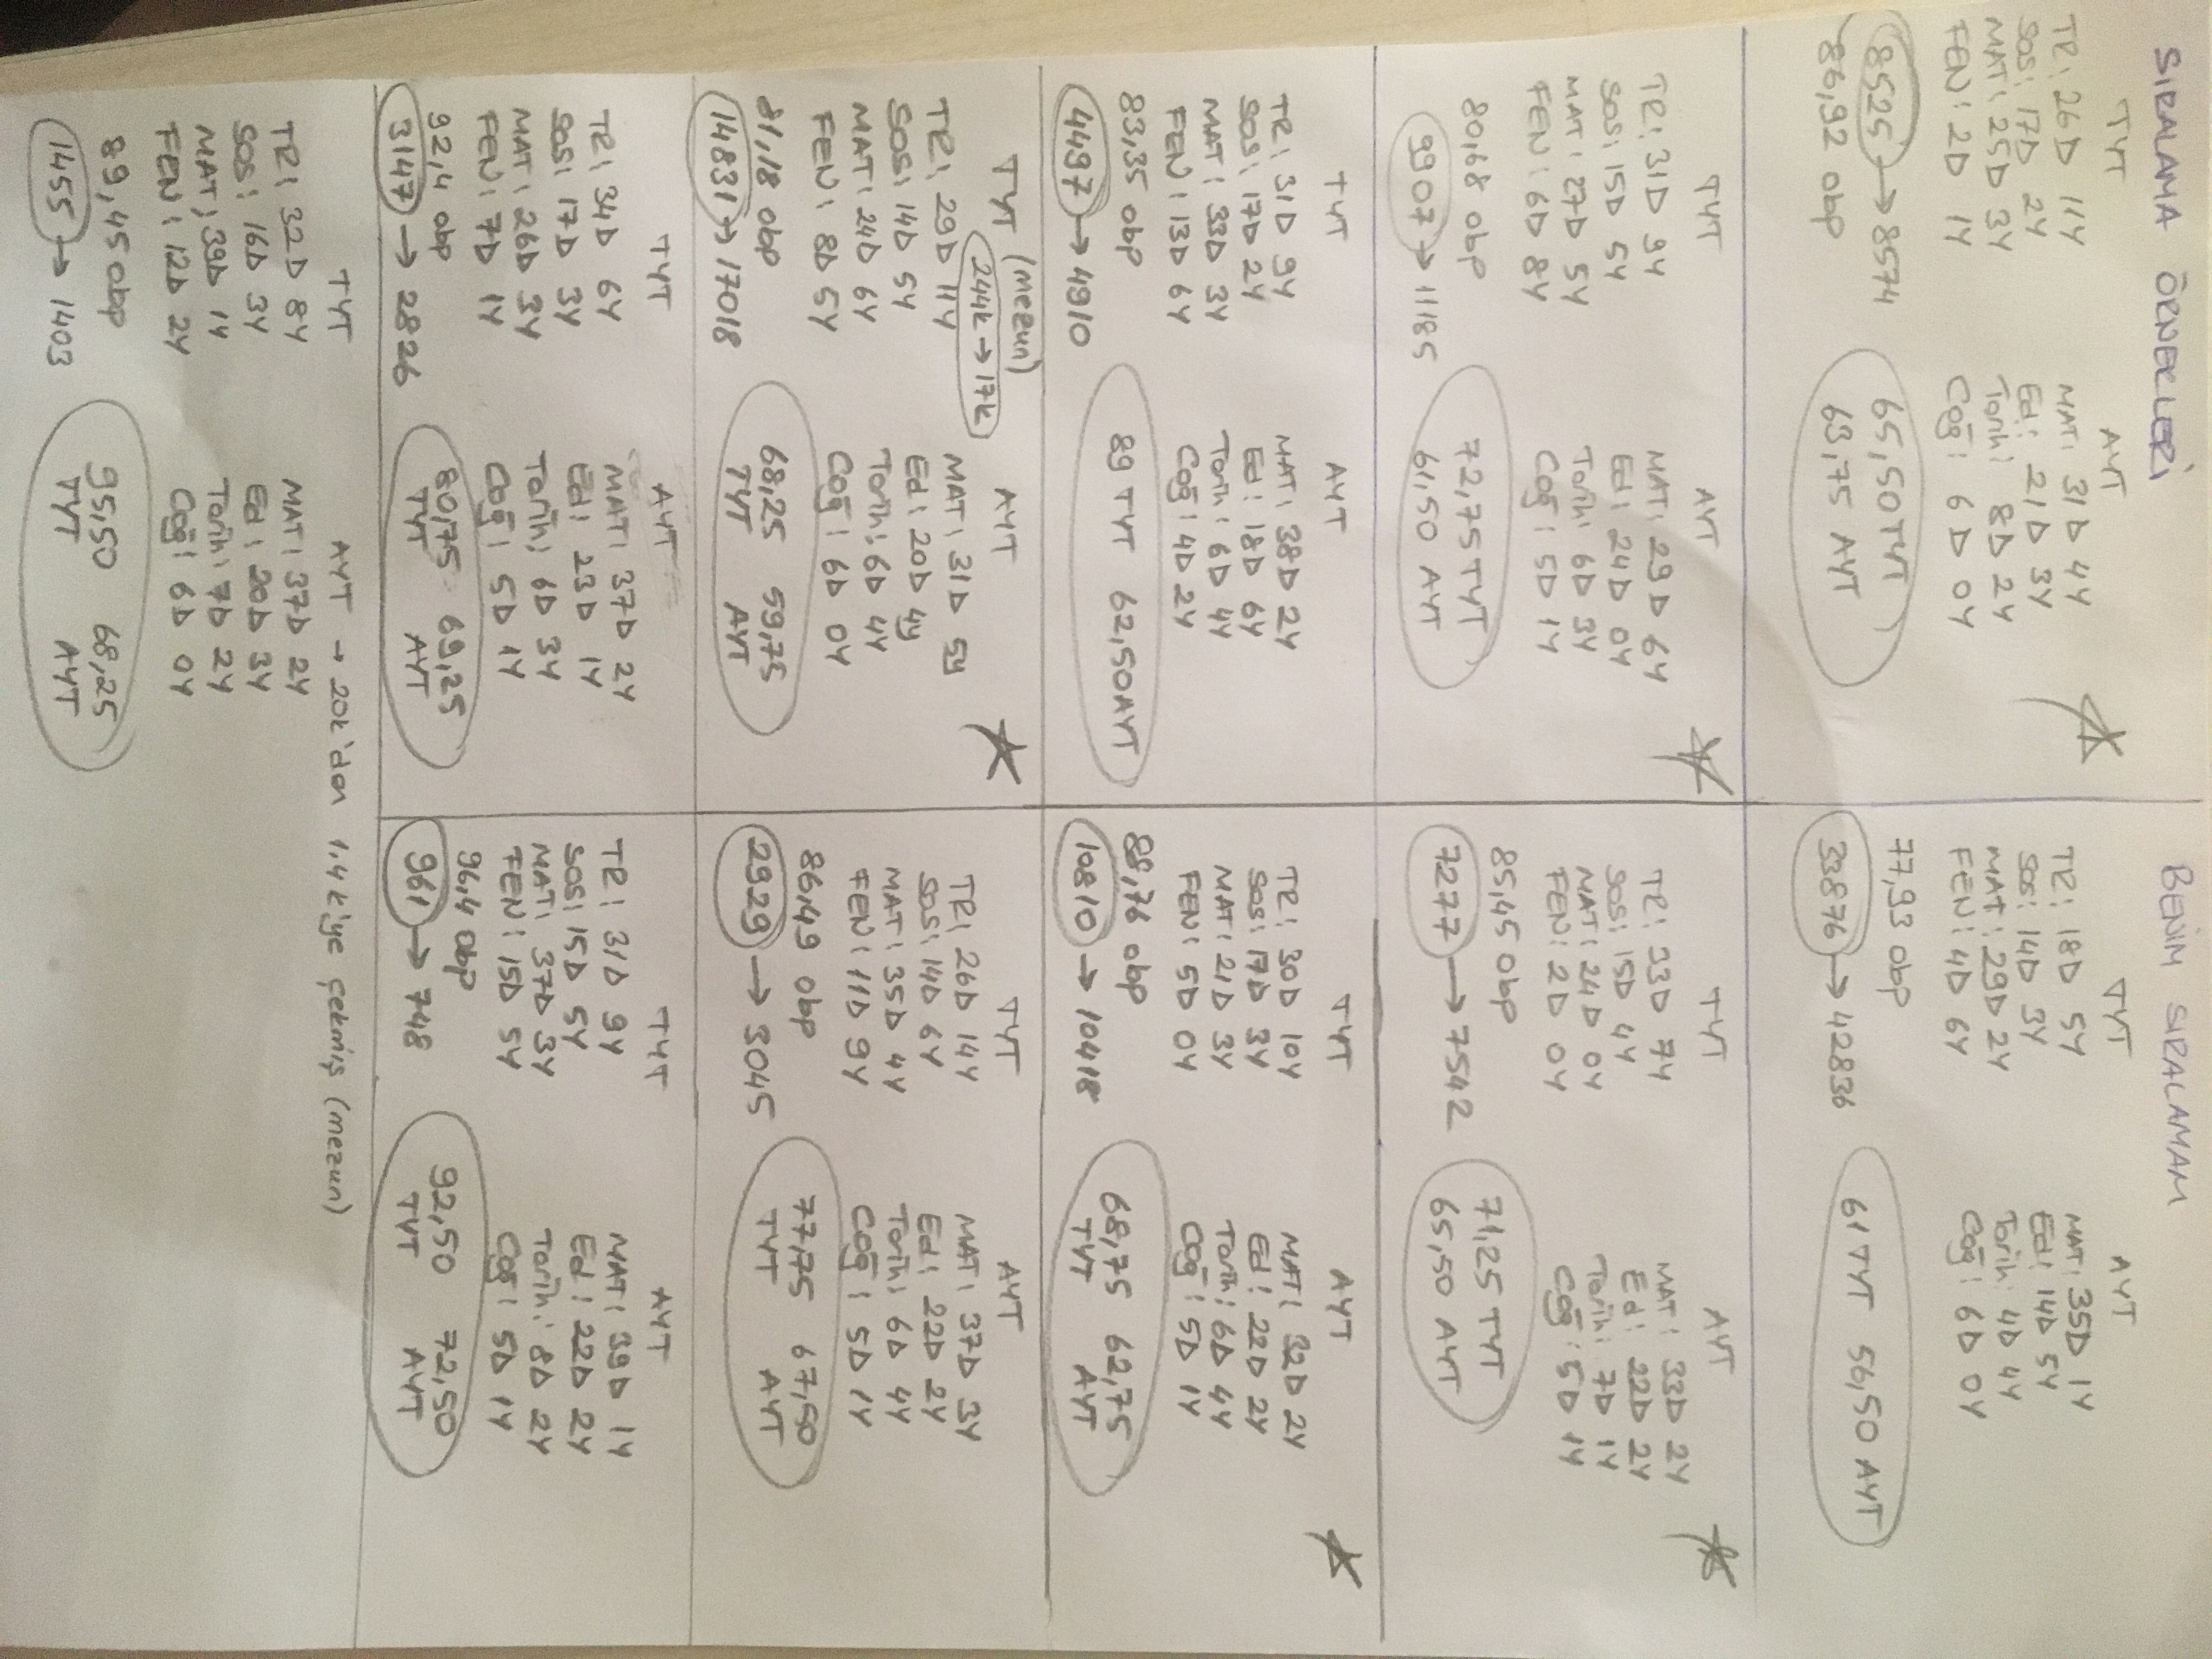 SIRALAMA ÖRNEKLERİ
BENİM SIRALAMAM
TYT
TR: 26D 11Y
SOS: 17D 2Y
MAT: 25D 3Y
FEN: 2D 1Y
8525 → 8574
86,92 obp
AYT
MAT: 31D 4Y
Ed: 21D 3Y
Tarih: 8D 2Y
Coğ: 6D 0Y
65,50 TYT
63,75 AYT
TYT
TR: 18D 5Y
SOS: 14D 3Y
MAT: 29D 2Y
FEN: 4D 6Y
77,93 obp
33876 → 42836
AYT
MAT: 35D 1Y
Ed: 14D 5Y
Tarih: 4D 4Y
Coğ: 6D 0Y
61 TYT 56,50 AYT
TYT
TR: 31D 9Y
SOS: 15D 5Y
MAT: 27D 5Y
FEN: 6D 8Y
80,68 obp
9907 → 11185
AYT
MAT: 29D 6Y
Ed: 24D 0Y
Tarih: 6D 3Y
Coğ: 5D 1Y
72,75 TYT
61,50 AYT
TYT
TR: 33D 7Y
SOS: 15D 4Y
MAT: 24D 0Y
FEN: 2D 0Y
85,45 obp
7277 → 7542
AYT
MAT: 33D 2Y
Ed: 22D 2Y
Tarih: 7D 1Y
Coğ: 5D 1Y
71,25 TYT
65,50 AYT
TYT
TR: 31D 9Y
SOS: 17D 2Y
MAT: 33D 3Y
FEN: 13D 6Y
83,35 obp
4497 → 4910
AYT
MAT: 38D 2Y
Ed: 18D 6Y
Tarih: 6D 4Y
Coğ: 4D 2Y
89 TYT 62,50 AYT
TYT
TR: 30D 10Y
SOS: 17D 3Y
MAT: 21D 3Y
FEN: 5D 0Y
88,76 obp
10810 → 10418
AYT
MAT: 32D 2Y
Ed: 22D 2Y
Tarih: 6D 4Y
Coğ: 5D 1Y
68,75 62,75
TYT AYT
TYT (mezun)
244k → 17k
TR: 29D 11Y
SOS: 14D 5Y
MAT: 24D 6Y
FEN: 8D 5Y
81,18 obp
14831 → 17018
AYT
MAT: 31D 5Y
Ed: 20D 4y
Tarih: 6D 4Y
Coğ: 6D 0Y
68,25 59,75
TYT AYT
TYT
TR: 26D 14Y
SOS: 14D 6Y
MAT: 35D 4Y
FEN: 11D 9Y
86,49 obp
2929 → 3045
AYT
MAT: 37D 3Y
Ed: 22D 2Y
Tarih: 6D 4Y
Coğ: 5D 1Y
77,75 67,50
TYT AYT
TYT
TR: 34D 6Y
SOS: 17D 3Y
MAT: 26D 3Y
FEN: 7D 1Y
92,4 obp
3147 → 2826
AYT
MAT: 37D 2Y
Ed: 23D 1Y
Tarih: 6D 3Y
Coğ: 5D 1Y
80,75 69,25
TYT AYT
TYT
TR: 31D 9Y
SOS: 15D 5Y
MAT: 37D 3Y
FEN: 15D 5Y
96,4 obp
961 → 748
AYT
MAT: 39D 1Y
Ed: 22D 2Y
Tarih: 8D 2Y
Coğ: 5D 1Y
92,50 72,50
TYT AYT
TYT
TR: 32D 8Y
SOS: 16D 3Y
MAT: 39D 1Y
FEN: 12D 2Y
89,45 obp
1455 → 1403
AYT → 20k'dan 1,4k'ye çekmiş (mezun)
MAT: 37D 2Y
Ed: 20D 3Y
Tarih: 7D 2Y
Coğ: 6D 0Y
95,50 68,25
TYT AYT